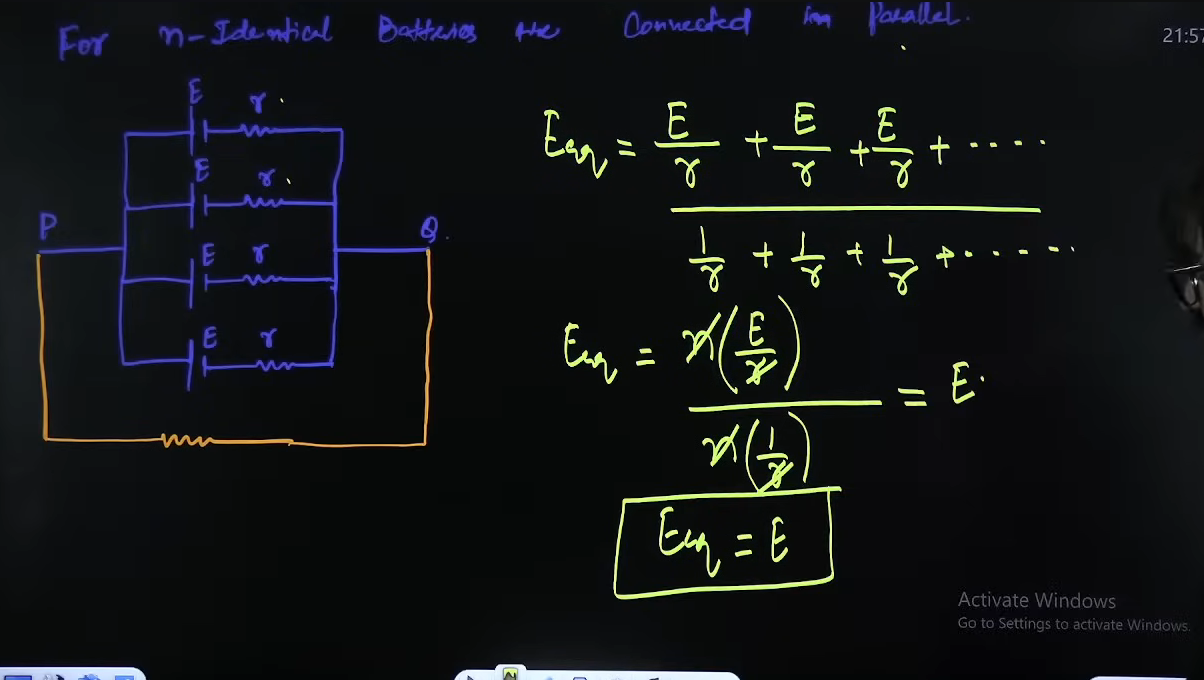 For n-Identical Batteries are Connected in Parallel.
21:57
E r
E r
P Q.
E r
E r
Eeq = E/r + E/r + E/r + ....
1/r + 1/r + 1/r + ......
Eeq = n(E/r)
= E.
n(1/r)
Eeq = E
Activate Windows
Go to Settings to activate Windows.